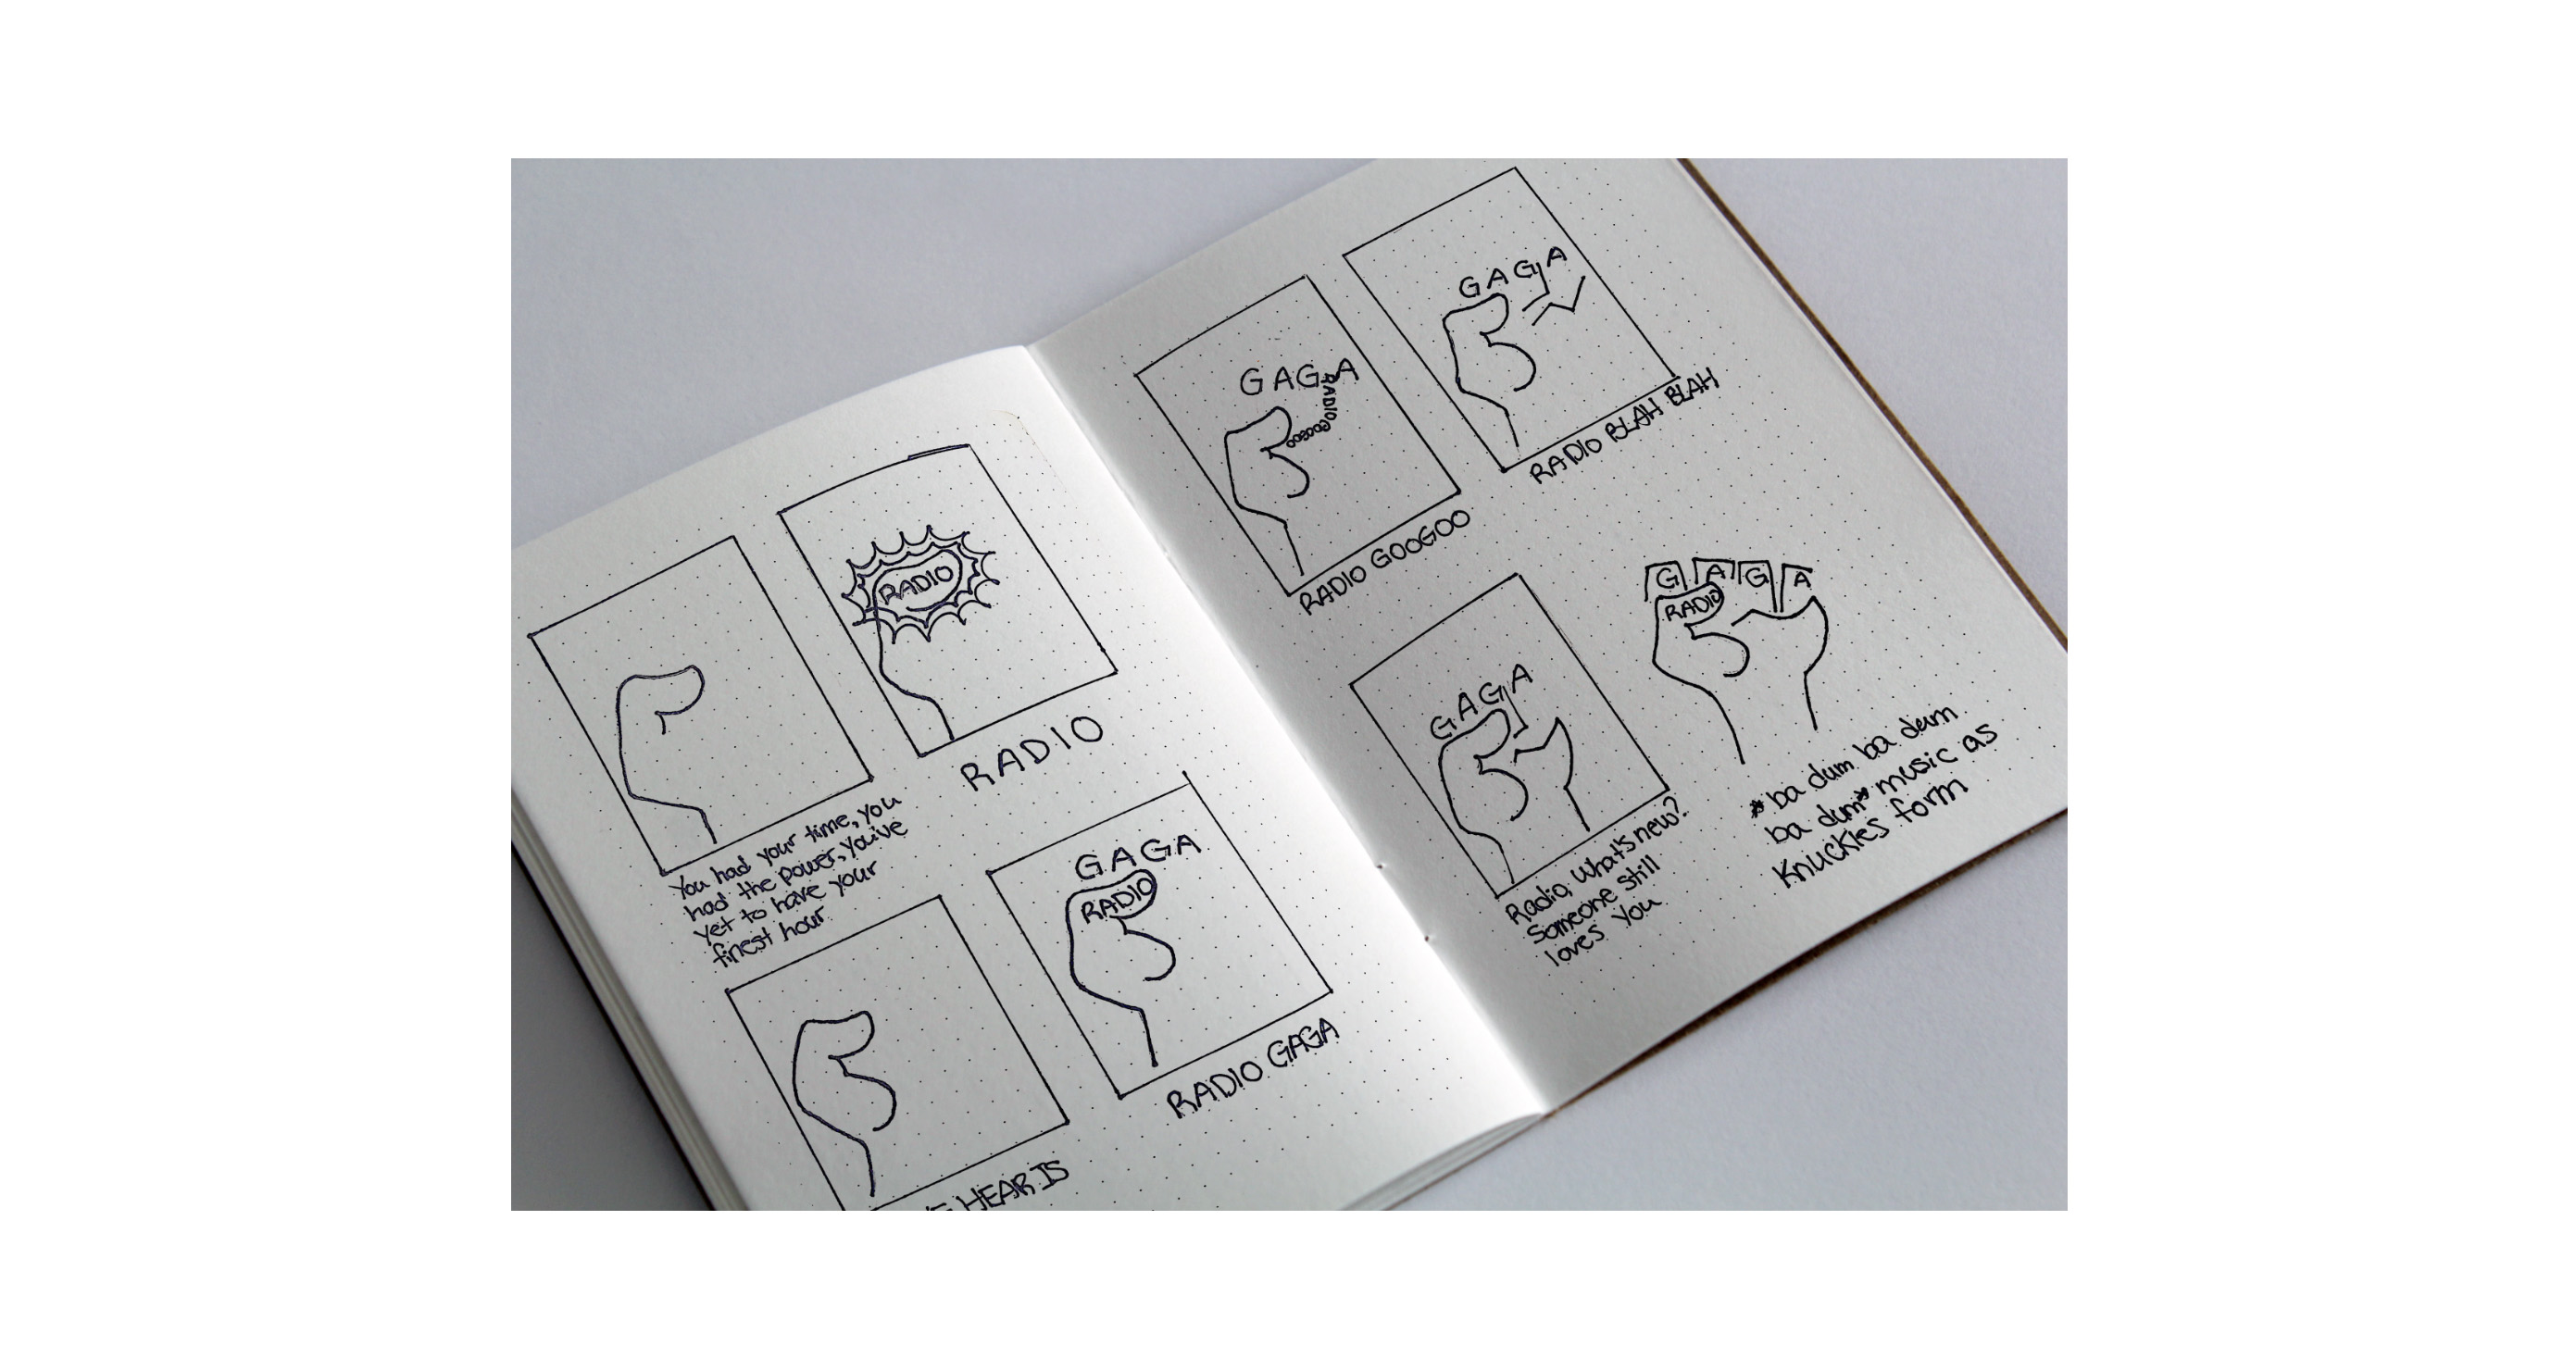 You had your time, you
had the power, you've
yet to have your
finest hour
RADIO
RADIO
HEAR IS
GAGA
RADIO
RADIO GAGA
GAGA
RADIO GOOGOO
RADIO GOOGOO
GAGA
RADIO BLAH BLAH
GAGA
Radio, what's new?
Someone still
loves you
GAGA
RADIO
*ba dum ba dum
ba dum* music as
knuckles form